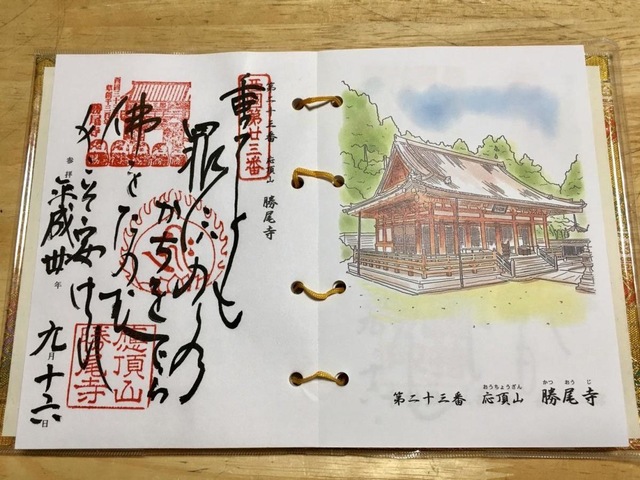 第二十三番 応頂山 勝尾寺
西国第廿三番
重くとも
罪にハのりの
かちをてら
佛をたのむ
身こそ安けれ
應頂山
勝尾寺
参拝 平成卅年九月十六日
おうちょうざん かつおうじ
第二十三番 応頂山 勝尾寺